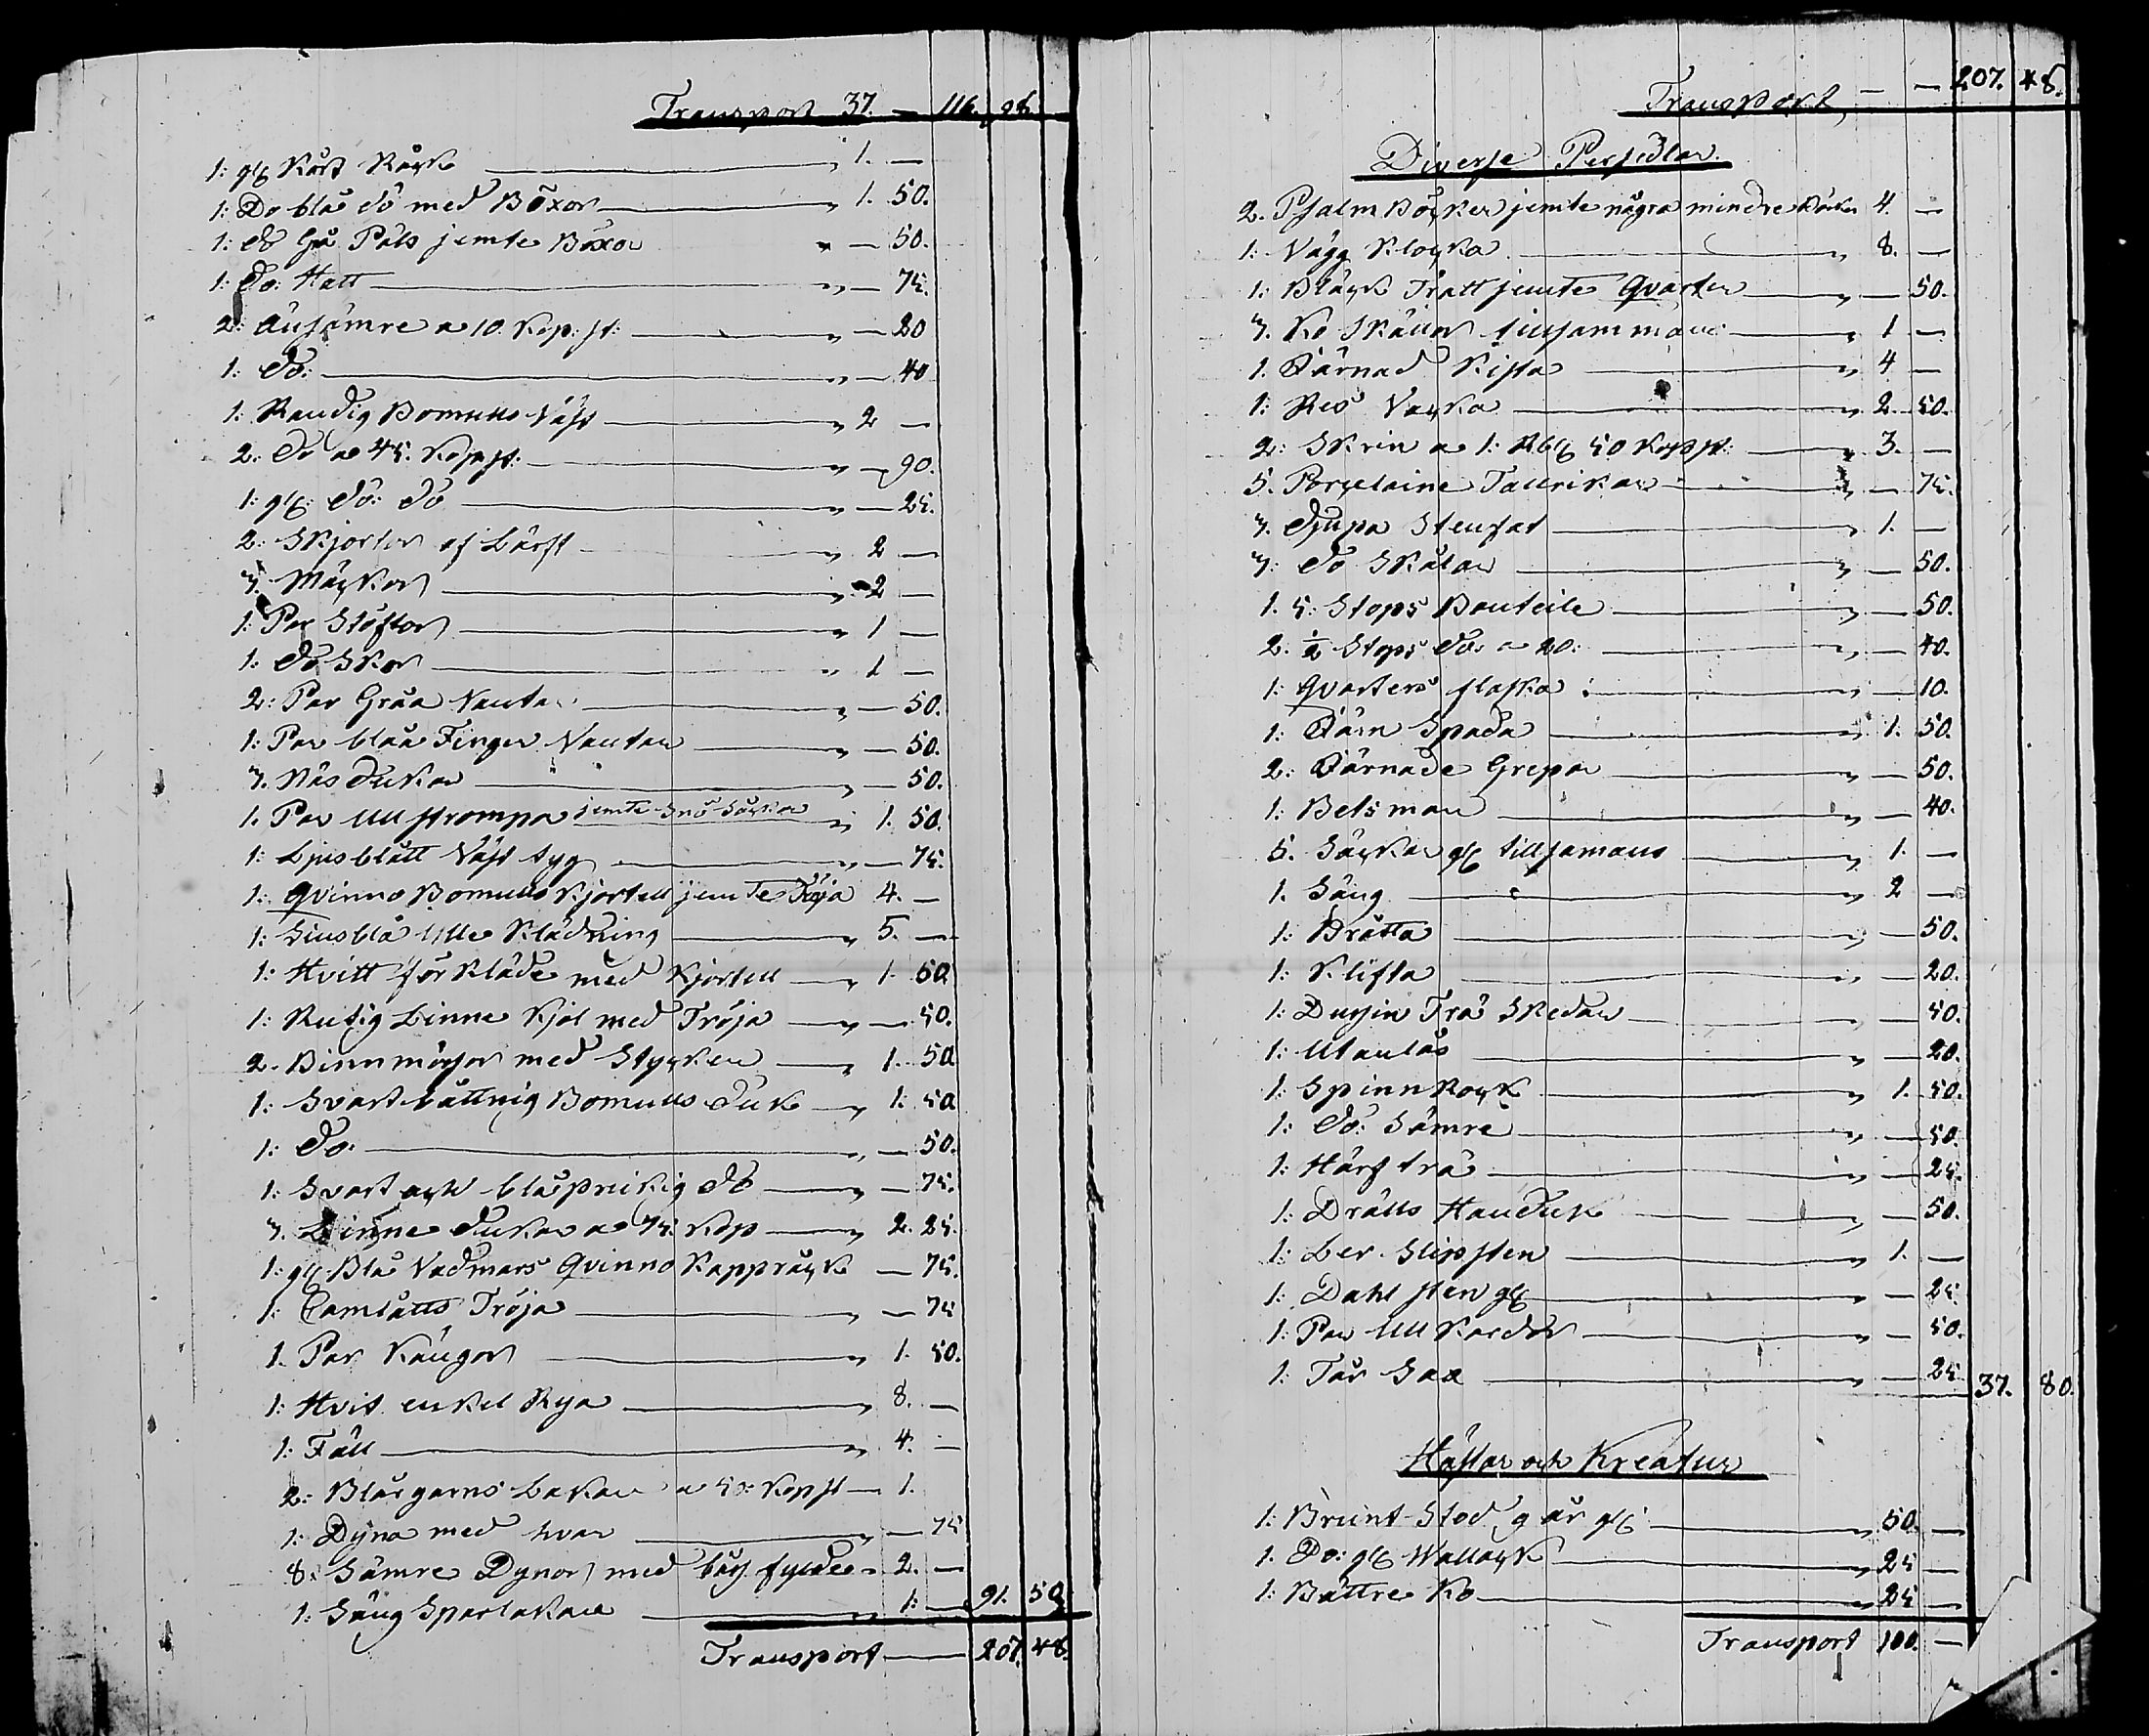 Transport 37. — 116. 98.
1: glE Kort Råck — " 1. —
1: Do blå do med Böxor — " 1. 50.
1: do Grå Päls jemte Böxor " — 50.
1: do: Hatt — " — 75.
2: ämre a 10. Kop: st: — " — 20
1: do: — " — 40
1: Randig Bomulls Väst — " 2 —
2. do a 45. Kop st: — " — 90.
1: glE: do: do — " — 25.
2: Skjortor af Lärft — " 2 —
3. Mäckor — " 2 —
1: Par Stöflor — " 1 —
1: do Skor — " 1 —
2: Par Gråa Vantar — " — 50.
1: Par blåa Finger Vantar — " — 50.
3. Näsdukar — " — 50.
1. Par Ull strompor jemte Snö Såckor " 1. 50.
1: Ljusblått Väst tyg — " — 75.
1: Qvinno Bomulls Kjortell jemte Tröja 4. —
1: Liusblå Ylle Klädning — " 5. —
1: Hvitt förkläde med Kjortell — " 1. 50
1: Rutig Linne Kjol med Tröja — " — 50.
2. Binnmössor med Stycken — " 1. 50
1: Svartbåttnig Bomulls duk — " 1: 50
1: do: — " — 50.
1: Svart och blåsprickig do — " — 75.
3. Linne dukar a 75. Kop — " 2. 25.
1: glE Blå Vadmars Qvinno Kappråck — 75.
1: Camlåtts Tröja — " — 75
1. Par Kängor — " 1. 50.
1: Hvit enkel Rya — " 8. —
1: Fäll — " 4. —
2: Blårgarns Lakan a 50: Kop st — 1.
1: Dyna med hvar — " — 75
8: Sämre Dynor med fylde — 2. —
1: Säng Sparlakan — " 1: — 91. 50
Transport — 207. 48.
Transport, — — 207. 48.
Diverse Persedlar.
2. Psalm Böcker jemte några mindre Böcker 4. —
1: Vägg Klocka — " 8. —
1: Bläck Tratt jemte Qvarter — " — 50.
3. Ko Skällor tillsammans — " 1 —
1. Järnad Kista — " 4 —
1: Res Vacka — " 2. 50.
2: Skrin a 1: RblE 50 Kop st: — " 3. —
5. Porcelaine Tallrikar — " — 75.
3. djupa Stenfat — " 1. —
3: do Skålar — " — 50.
1. 5: Stops Bouteile — " — 50.
2. ½ Stops do: a 20: — " — 40.
1: Qvarters flaska: — " — 10.
1: Järn Spada — " 1. 50.
2: Järnade Grepar — " — 50.
1: Betsman — " — 40.
5. Säckar glE tillsamans — " 1. —
1. Säng — " 2 —
1: Bråtta — " — 50.
1: Klifta — " — 20.
1: Dussin Trä Skedar — " — 50.
1: Utanlås — " — 20.
1: Spinn Rock — " 1. 50.
1: do: Sämre — " — 50.
1: Härf trä — " — 25.
1: Drälls Handuk — " — 50.
1: Ler Slipsten — " 1. —
1: Dahl sten glE — " — 25.
1: Par Ull Kardor — " — 50.
1: Får Sax — " — 25 37. 80.
Hästar och Kreatur
1: Brunt Stod 9 år glE — " 50. —
1. Do: glE Wallack — " 25 —
1: Bättre Ko — " 25 —
Transport 100. —